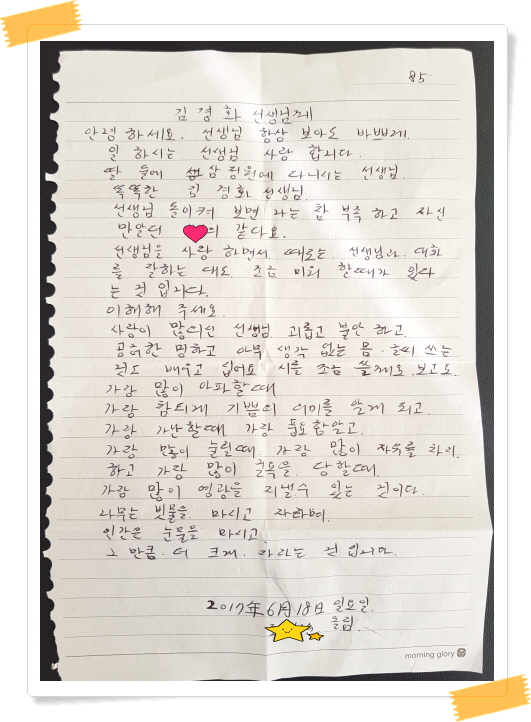 85
김경화 선생님께
안녕 하세요. 선생님 항상 보아도 바쁘게.
일 하시는 선생님 사랑 합니다.
딸 둘에 삼남원에 다니시는 선생님.
똑똑한 김 경화 선생님.
선생님 돌이켜 보면 나는 참 부족 하고 자신
만알던 의 같다요.
선생님을 사랑 하면서 때로는 선생님과 대화
를 잘하는 대도 조금 미워 할때가 있다
는 것 입니다.
이해해 주세요.
사랑이 많으신 선생님 괴롭고 불안 하고.
공허한 멍하고 아무 생각 없는 몸. 글씨 쓰는
것도 배우고 십어요 시를 조금 쓸께요 보고도.
가랑 많이 아파할때
가랑 참되게 기쁨의 의미를 알게 되고.
가랑 가난할때 가랑 풍요함알고.
가랑 많이 눌릴때. 가랑 많이 자유를 차리.
하고 가랑 많이 굴욕을 당할때.
가랑 많이 영광을 지낼수 있는 것이다.
나무는 빗물을 마시고 자라며.
인간은 눈물을 마시고
그 만큼. 더 크게. 자라는 것 입니다.
2017年 6月 18日 일요일.
올림.
morning glory